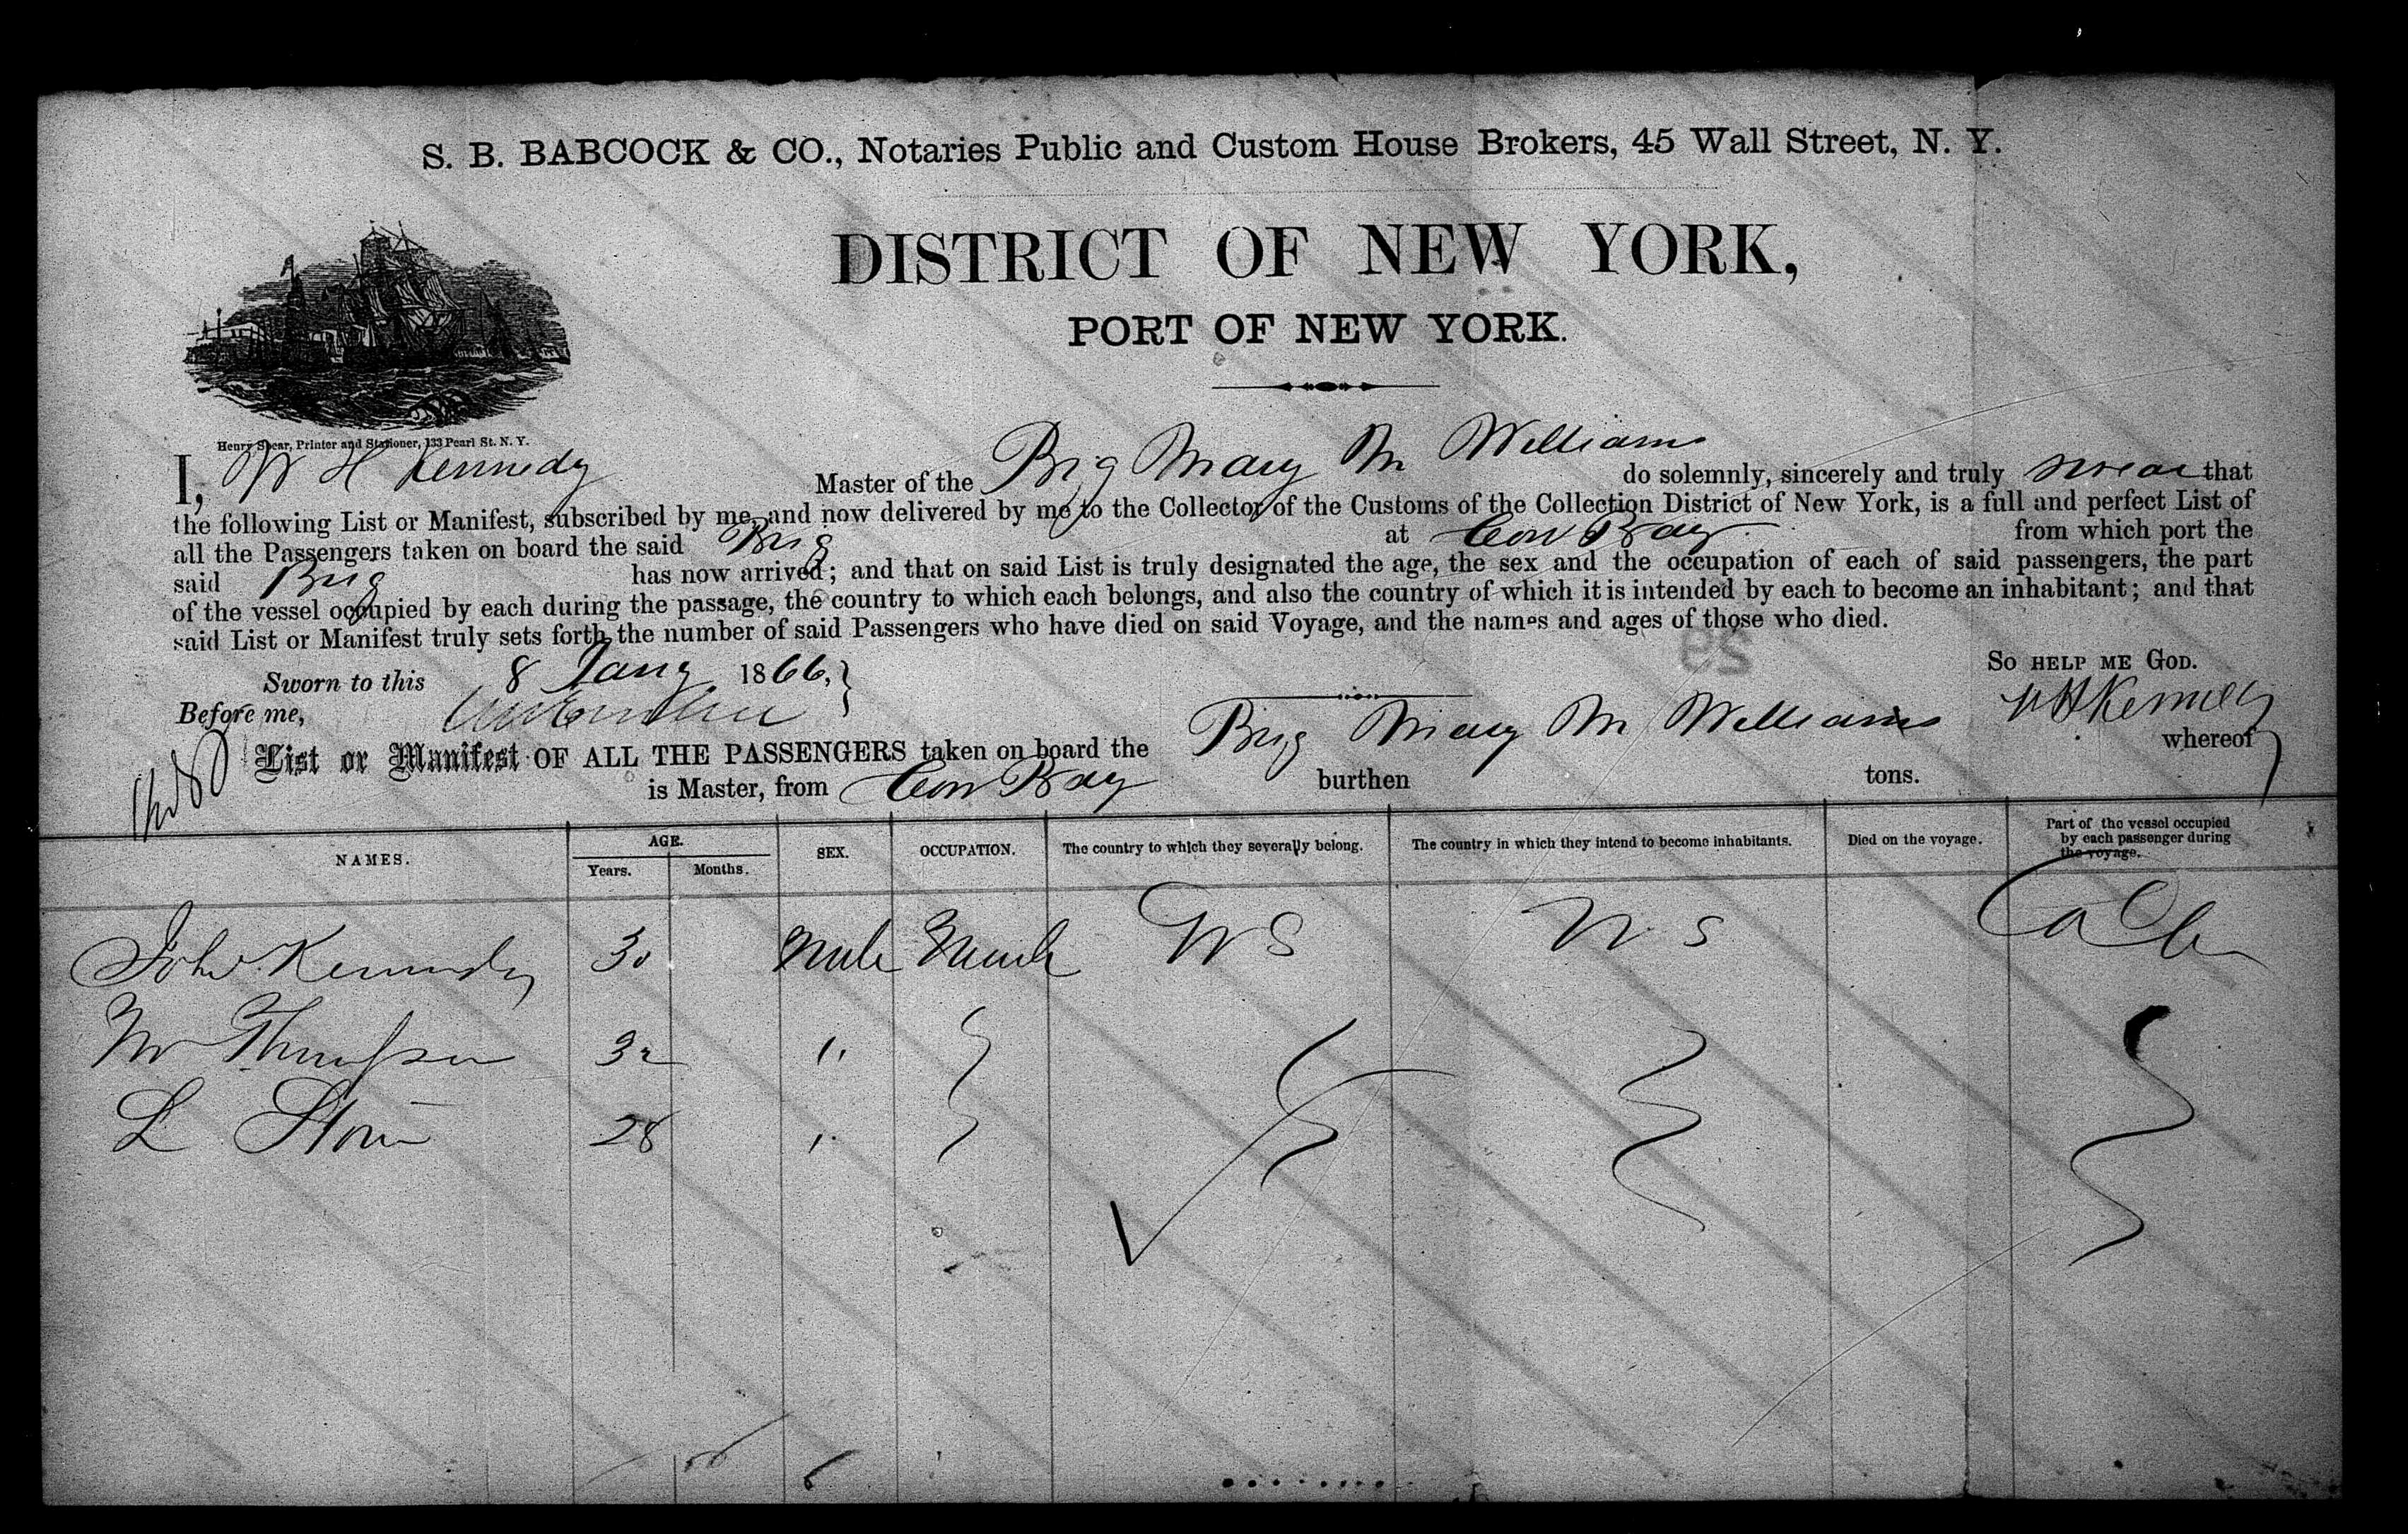 S. B. BABCOCK & CO., Notaries Public and Custom House Brokers, 45 Wall Street, N. Y.
DISTRICT OF NEW YORK,
PORT OF NEW YORK.
Henry Spear, Printer and Stationer, 133 Pearl St. N. Y.
I, W H Kennedy Master of the Brig Mary M Williams do solemnly, sincerely and truly swear that
the following List or Manifest, subscribed by me, and now delivered by me to the Collector of the Customs of the Collection District of New York, is a full and perfect List of
all the Passengers taken on board the said Brig at Cow Bay from which port the
said Brig has now arrived; and that on said List is truly designated the age, the sex and the occupation of each of said passengers, the part
of the vessel occupied by each during the passage, the country to which each belongs, and also the country of which it is intended by each to become an inhabitant; and that
said List or Manifest truly sets forth the number of said Passengers who have died on said Voyage, and the names and ages of those who died.
Sworn to this 8 Jany 1866, So HELP ME GOD.
Before me, W H Kennedy
List or Manifest OF ALL THE PASSENGERS taken on board the Brig Mary M Williams whereof
is Master, from Cow Bay burthen tons.
NAMES. AGE. Years. Months. SEX. OCCUPATION. The country to which they severally belong. The country in which they intend to become inhabitants. Died on the voyage. Part of the vessel occupied by each passenger during the voyage.
John Kennedy 30 Male
Thompson 32 "
L 28 "